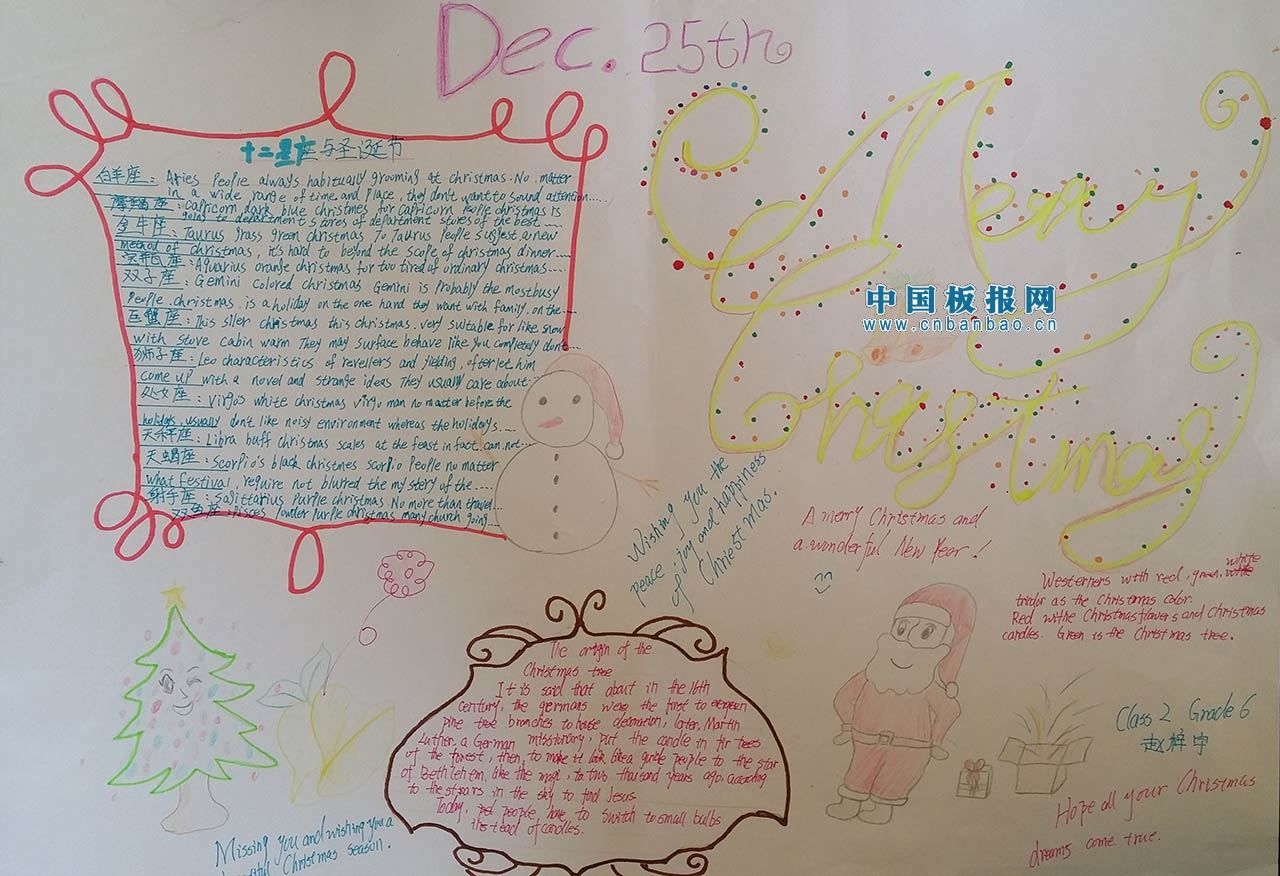 Dec. 25th
Merry
Christmas
中国板报网
www.cnbanbao.cn
十二星座与圣诞节
白羊座: Aries People always habitually grooming at christmas. No matter
in a wide range of time and Place, they don't want to sound attention......
摩羯座: Capricorn dark blue christmas for capricorn people christmas is
going to department stores of department stores of the best ....
金牛座: Taurus grass green christmas To Taurus People suggest a new
method of christmas, it's hard to beyond the scope of christmas dinner....
水瓶座: Aquarius orange christmas for two tired of ordinary christmas....
双子座: Gemini colored christmas Gemini is Probably the most busy
People. christmas is a holiday on the one hand they want with family. on the...
巨蟹座: This siler christmas this christmas. very suitable for like snow
with stove cabin warm They may surface behave like you completely don't...
狮子座: Leo characteristics of revellers and yielding, often let him
come up with a novel and strange ideas They usually care about...
处女座: Virgos white christmas Virgo man no matter before the
holidays, usually don't like noisy environment whereas the holidays....
天秤座: Libra buff christmas scales at the feast in fact. can not...
天蝎座: Scorpio's black christmes scorpio People no matter
what festival, require not blurred the my story of the....
射手座: Sagittarius Purple christmas No more than travel...
双鱼座: Pisces Powder Purple christmas many church going....
Wishing you the
peace, joy and happiness
of Chriestmas.
A merry Christmas and
a wonderful New Year!
Westerners with red, green, white
tricolor as the Christmas color.
Red withe Christmas flowers and Christmas
candles. Green is the Christmas tree.
The origin of the
Christmas tree
It is said that about in the 16th
century, the germans were the first to evergeen
pine tree branches to house decoration, later, Martin
Luther a German missionary, put the candle in fir trees
of the forest, then, to make it look like a guide people to the star
of Bethlehem, like the magi, to two thousand years ago, according
to the stars in the sky to find Jesus
Today, people, have to switch to small bulbs
instead of candles.
Class 2 Grade 6
赵梓宇
Hope all your Christmas
dreams come true.
Missing you and wishing you a
Christmas season.